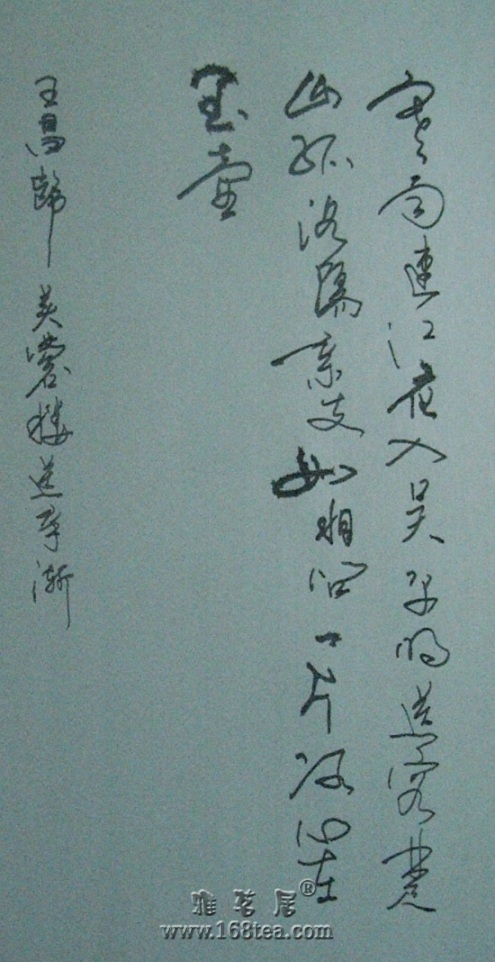 寒雨連江夜入吴平明送客楚
山孤洛陽亲友如相问一片冰心在
玉壺
王昌齡 芙蓉楼送辛漸
雅茗居®
www.168tea.com